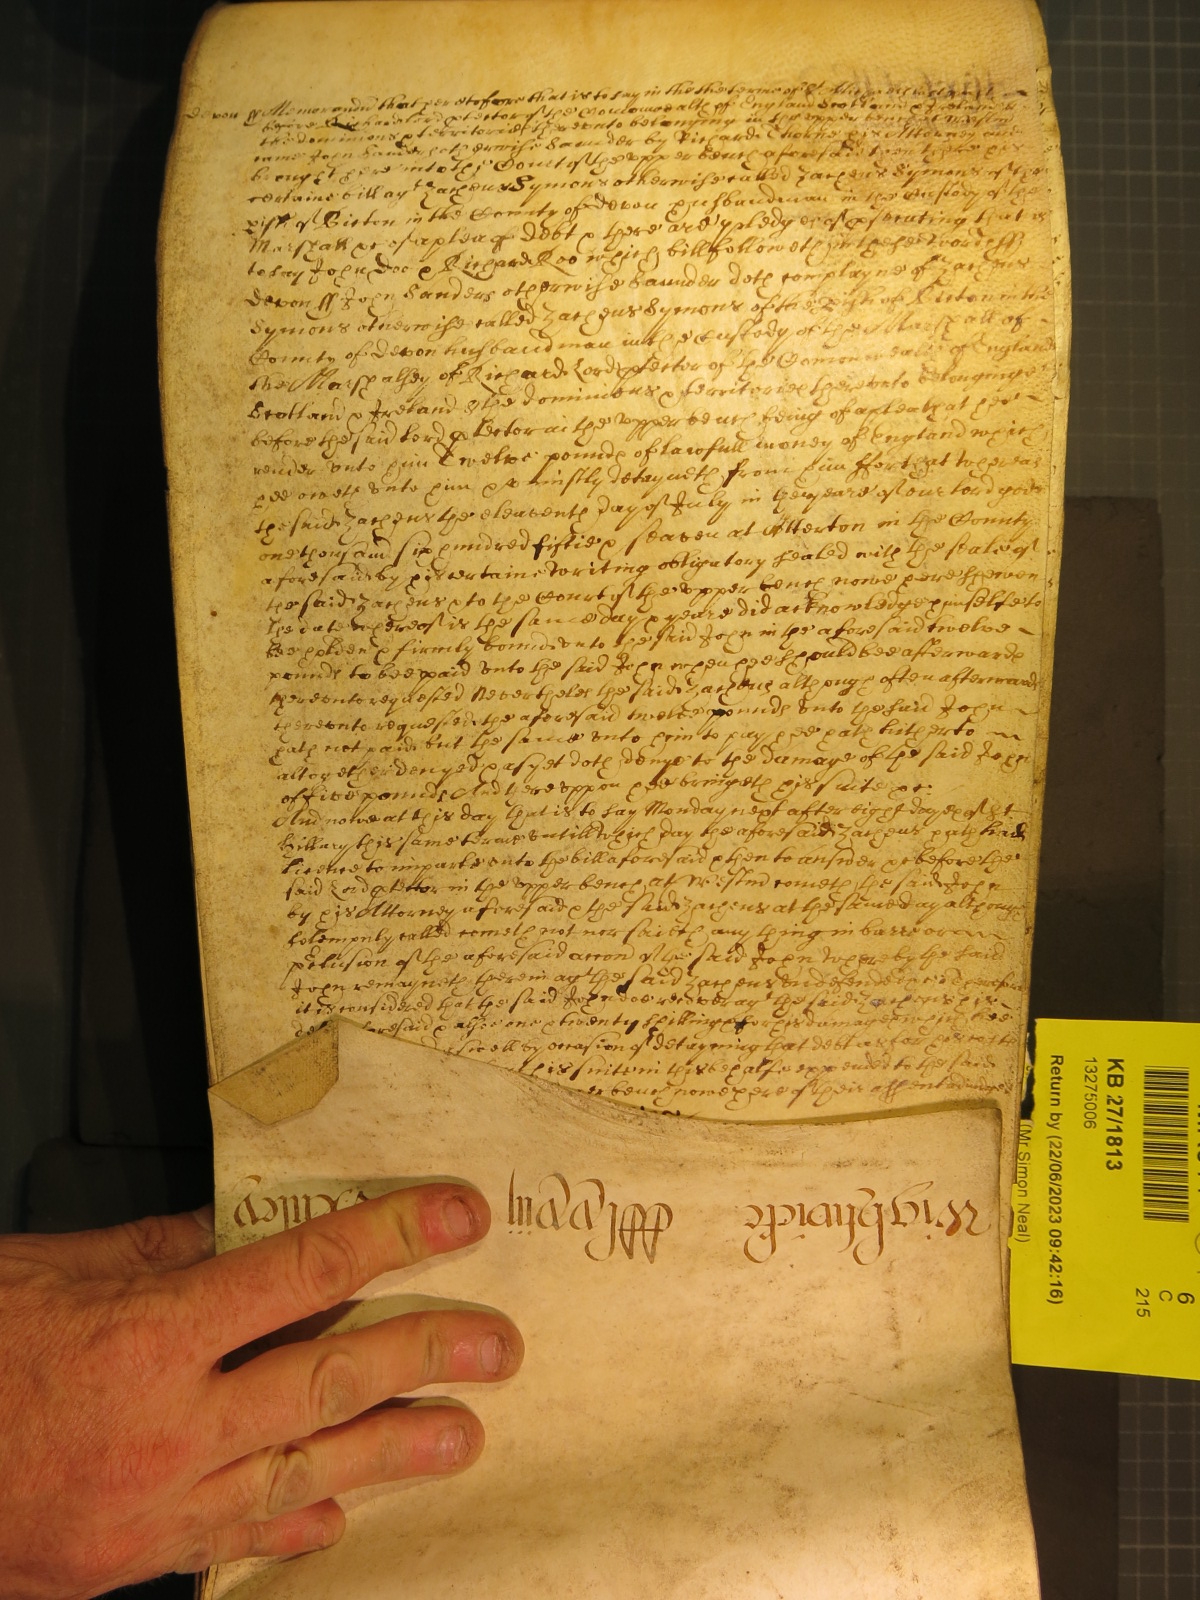 Devon ss Memorandu that heretofore that is to say in the terme of St Michael
before Richard Lord Protector of the Comonwealth of England Scotland & Ireland &
the dominions & territories thereunto belonging in the upper bench at Westmr
came John Sanders otherwise Saunder by Richard Thorne his Attorney and
brought here into the Court of the upper bench aforesaid then there his
certaine bill agt Zacheus Symons otherwise called Zacheus Symons of the
pish of Bicton in the County of Devon husbandman in the Custody of the
Marshall &c of a plea of Debt & there are pledges of psecuting that is
to say John Doo & Richard Roo which bill followeth in these words ss
Devon ss John Sanders otherwise Saunder doth complayne of Zacheus
Symons otherwise called Zacheus Symons of the pish of Bicton in the
County of Devon husbandman in the Custody of the Marshall of
the Marshalsey of Richard Lord ptector of the Comonwealth of England
Scotland & Ireland & the dominions & territories thereunto belonginge
before the said Lord ptector at the upper bench being of a plea that hee
render unto him Twelve pounds of lawfull money of England which
hee oweth unto him & uniustly detayneth from him ffor that whereas
the said Zacheus the eleaventh day of July in the yeare of our Lord god
one thousand six hundred fiftie & seaven at Otterton in the County
aforesaid by his certaine writing obligatory sealed with the seale of
the said Zacheus & to the Court of the upper bench nowe here shewen
the date whereof is the same day & yeare did acknowledge himselfe to
bee holden & firmly bound unto the said John in the aforesaid twelve
pounds to bee paid unto the said John when hee should bee afterwards
thereunto requested Neverthelesse the said Zacheus although often afterwards
thereunto requested the aforesaid twelve pounds unto the said John
hath not paid but the same unto him to pay hee hath hitherto
altogether denyed & as yet doth denye to the damage of the said John
of five pounds And thereuppon hee bringeth his suite &c.
And nowe at this day that is to say Monday next after eight dayes of St
Hillary this same terme untill which day the aforesaid Zacheus hath had
licence to imparle unto the bill aforesaid & then to answer &c before the
said Lord ptector in the upper bench at Westmr cometh the said John
by his Attorney aforesaid & the said Zacheus at the same day although
solempnly called cometh not nor saieth any thing in barre or
prclusion of the aforesaid accon of the said John whereby the said
John remayneth therein agt the said Zacheus undefended &c Therefore
it is considered that the said John doe recover agt the said Zacheus his
de aforesaid & alsoe one & twenty shillings for his damages which hee
aswell by occasion of detayning that debt as for his costs
his suite in this behalfe expended to the said
er bench nowe here of their assent adiudged
Wightwicke